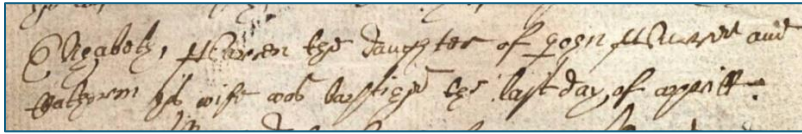 Elizabeth, the daughter of John and
Kathern his wife was baptised the last day, of aprill